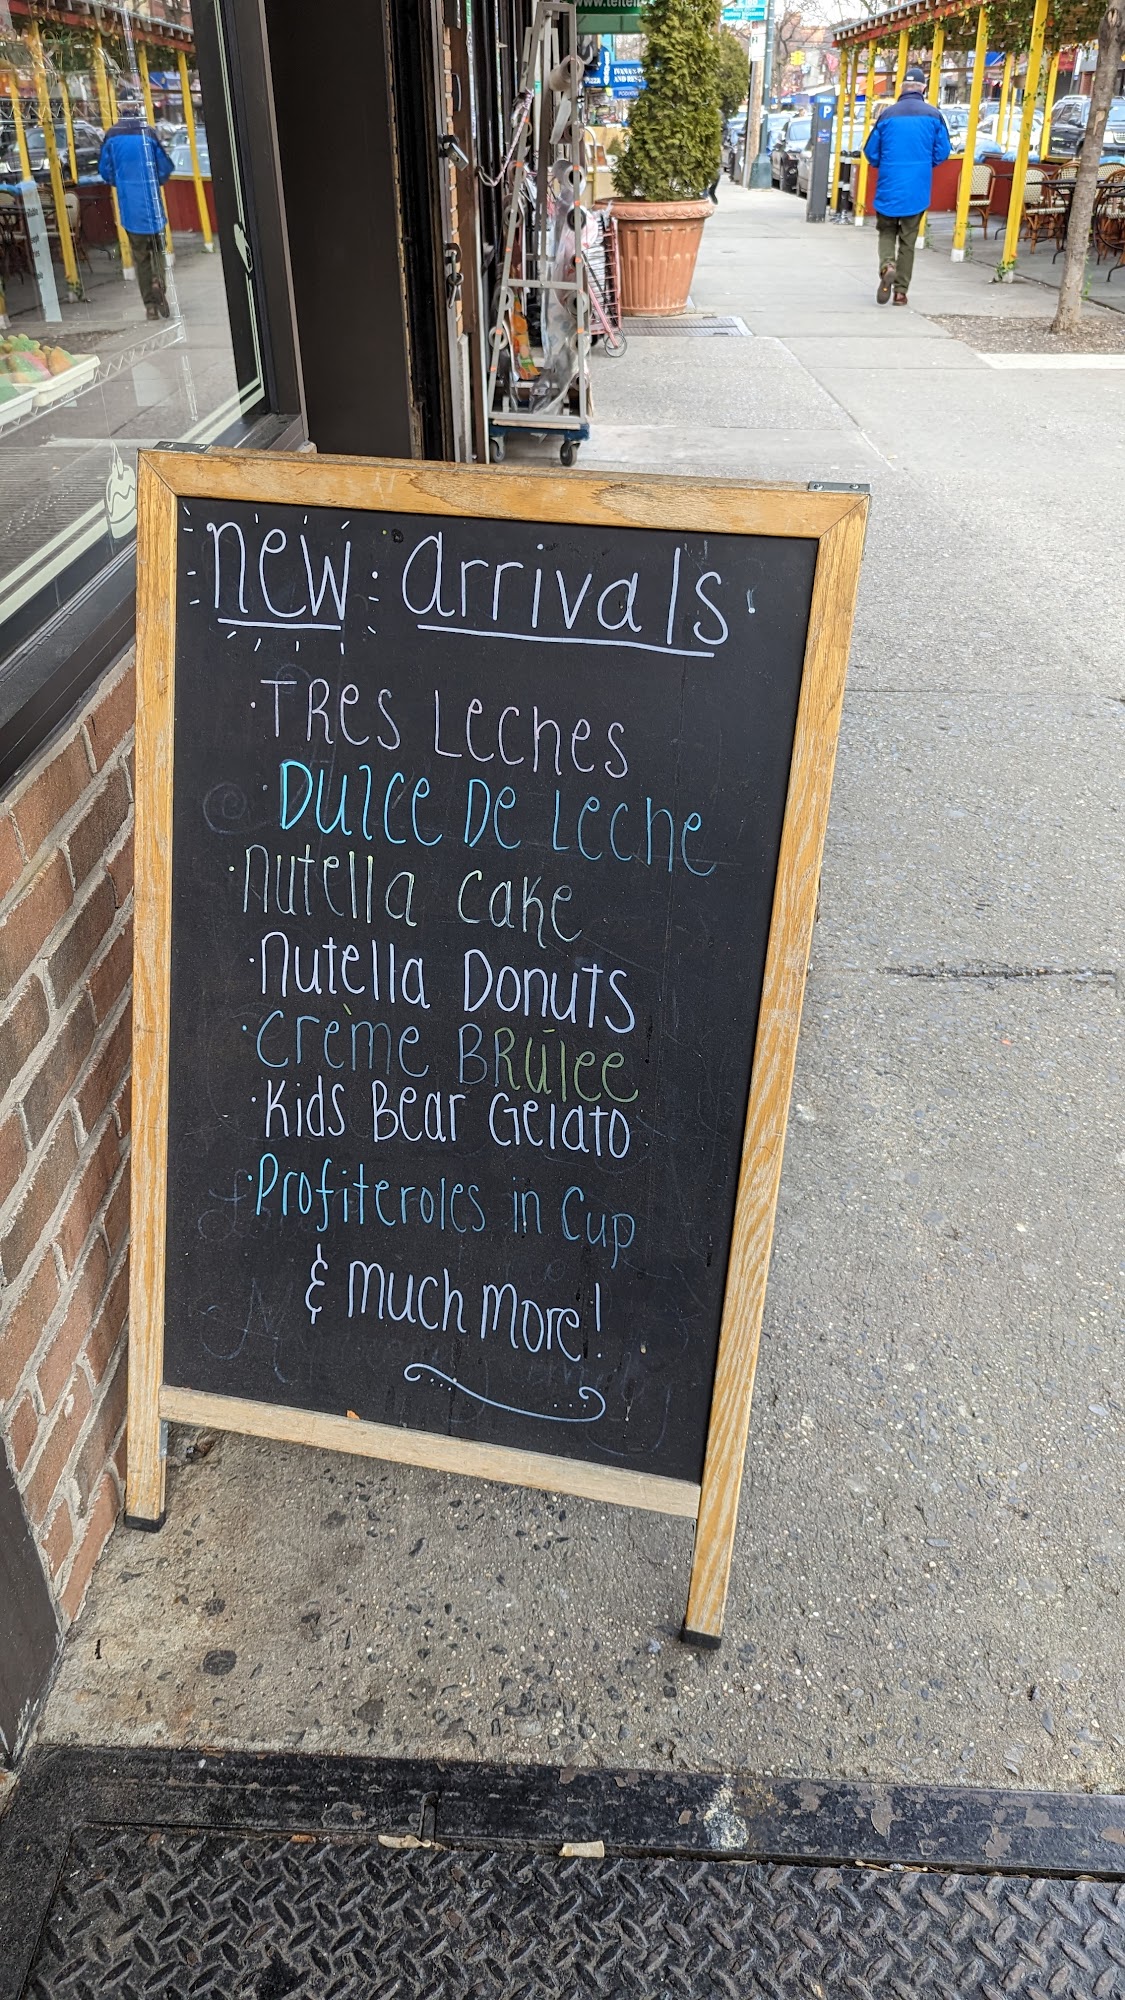 www.teitel
P
new arrivals
· Tres Leches
· Dulce De Leche
· Nutella Cake
· Nutella Donuts
· Crème Brúlee
· Kids Bear Gelato
· Profiteroles in Cup
& much more!